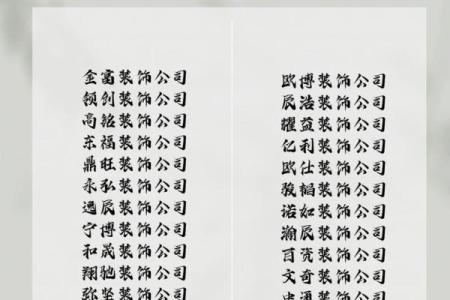 金富装饰公司
领创装饰公司
高韬装饰公司
东福装饰公司
鼎旺装饰公司
永弘装饰公司
逸辰装饰公司
宁博装饰公司
和晟装饰公司
翔驰装饰公司
弥坚装饰公司
欧博装饰公司
辰浩装饰公司
耀益装饰公司
亿利装饰公司
欧仕装饰公司
骏韬装饰公司
诺如装饰公司
瀚辰装饰公司
百瓷装饰公司
文奇装饰公司
忠通装饰公司